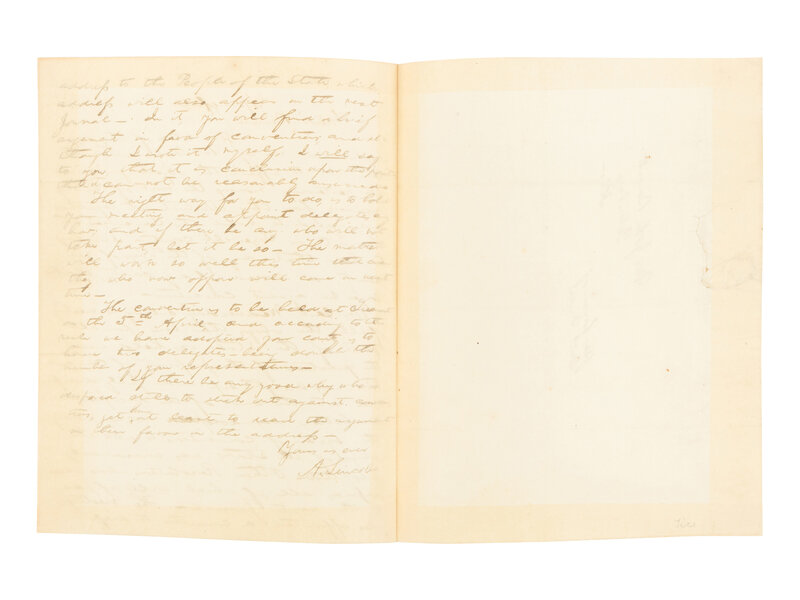 address to the People of the State which
address will also appear in the next
Journal— In it you will find a brief
argument in favor of conventions; and al
though I wrote it myself I will say
to you that it is conclusive upon the point
that it can not be reasonably answered
The right way for you to do is to hold
your meeting and appoint delegates any
how, and if there be any who will not
take part, let it be so— The matter
will work so well this time that even
they who now oppose will come in next
time—
The convention is to be held at
on the 5th April— and according to the
rule we have adopted your county is to
have two delegates— being double the
number of your representatives—
If there be any good whig who is
disposed still to stick out against conven
tions, get him at least to read the argument
in their favor in the address—
Yours as ever
A. Lincoln